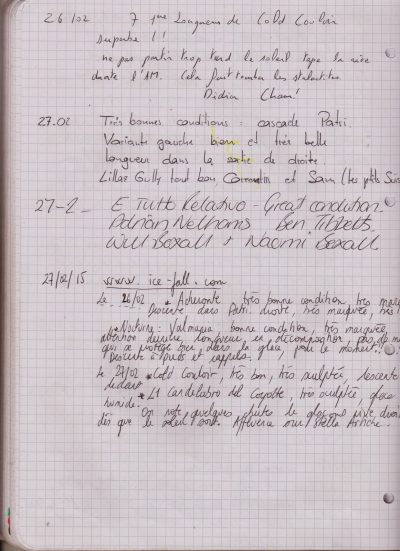 26/02 7 longueurs de Cold Couloir
superbe !!
ne pas partir trop tard le soleil tape la rive
droite l'AM. Cela fait tomber les stalactites.
Didier
27.02 Très bonnes conditions : cascade Patri.
Variante gauche bien et très belle
longueur dans la sortie de droite.
Lillaz Gully tout bon, Corentin et Sam (les ptits Suis
27-2- E Tutt Relativo - Great condition
Adrian Nelhams Ben Tibbetts
Will Boxall + Naomi Boxall
27/02/15 www.ice-fall.com
Le 26/02 * Acheronte très bonne condition, très mar
Descente dans Patri droite, très marquée, très
* Nocturne : Valmiana, bonne condition, très marquée,
attention dernière longueur, en décomposition, pas de m
qui se protège bien, dans la glace, pour le moment!!
Descente à pieds et rappels.
Le 27/02 * Cold Couloir, très bon, très sculptée, descente
dedans
* Il Candelabro del Coyote, très sculptée, glace
humide.
On note quelques chutes de glaçons rive droi
dès que le soleil sort. Affluence sur Stella Artice.